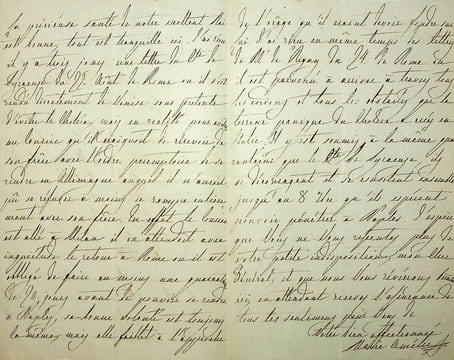 La précieuse santé de notre excellent Roi
est bonne, tout est tranquille ici. J'ai reçu
il y a trois jours une lettre du Cte de
Syracuse du 22 Août de Rome où il s'est
rendu directement de Venise sous prétexte
d'éviter le Choléra, mais en réalité pour
un Courrier qu'il craignait de recevoir de
son frère avec l'ordre péremptoire de se
rendre en Allemagne auquel il n'aurait
pu se refuser à moins de rompre entière
ment avec son frère. En effet le Courrier
est allé à Milan il en attendait avec
inquiétude le retour à Rome où il est
obligé de faire au moins une quarantaine
de 20 jours avant de pouvoir se rendre
à Naples, sa bonne volonté est toujours
la même, mais elle faiblit à l'approche
de l'orage qu'il craint de voir fondre sur
lui. J'ai reçu en même temps des lettres
de Mr de du 24 de Rome où
il est parvenu à arriver à travers tous
les cordons et tous les obstacles que la
terreur panique du Choléra a créés en
Italie. Il y est soumis à la même qua
rantaine que le Cte de Syracuse, ils
se découragent et se consultent ensemble
jusqu'au 8 7bre qu'ils espèrent
pouvoir pénétrer à Naples. J'espère
que vous ne vous ressentez plus de
votre petite indisposition, mon cher
Général, et que nous vous reverrons bientôt
ici, en attendant recevez l'assurance de
tous les sentiments pour vous de
Votre bien affectionnée
Marie Amélie